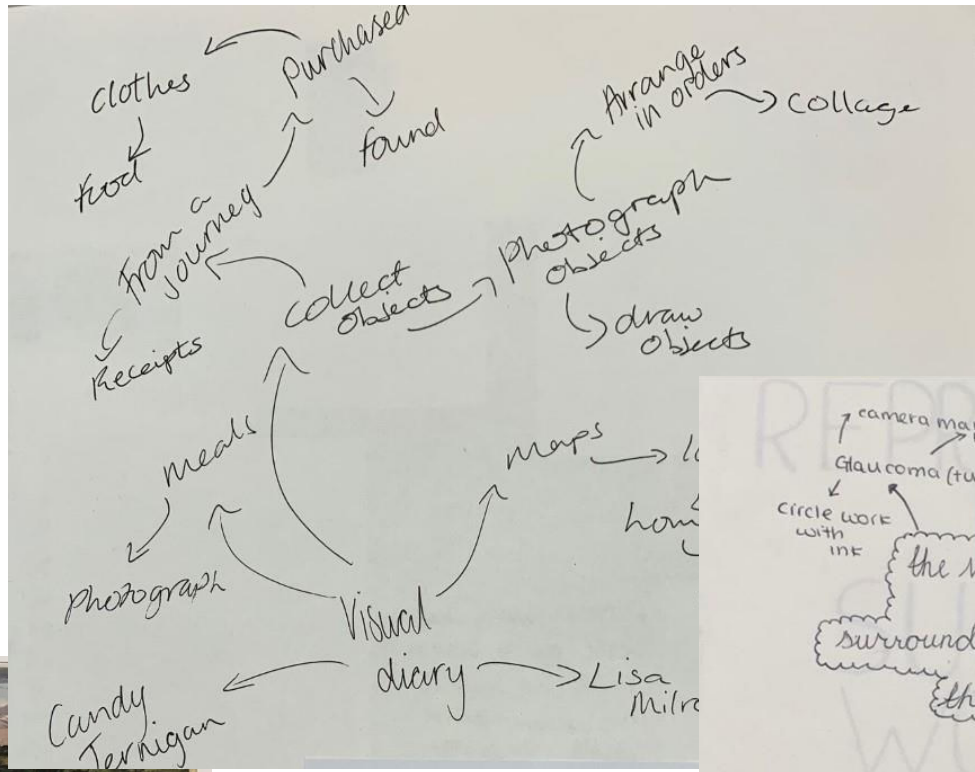 Purchased
clothes
found
food
From a
journey
Receipts
Collect
Objects
Photograph
Objects
Arrange
in orders
Collage
draw
objects
meals
photograph
maps
Visual
diary
Candy
Jernigan
Lisa
camera
Glaucoma
circle work
with
ink
the
surround